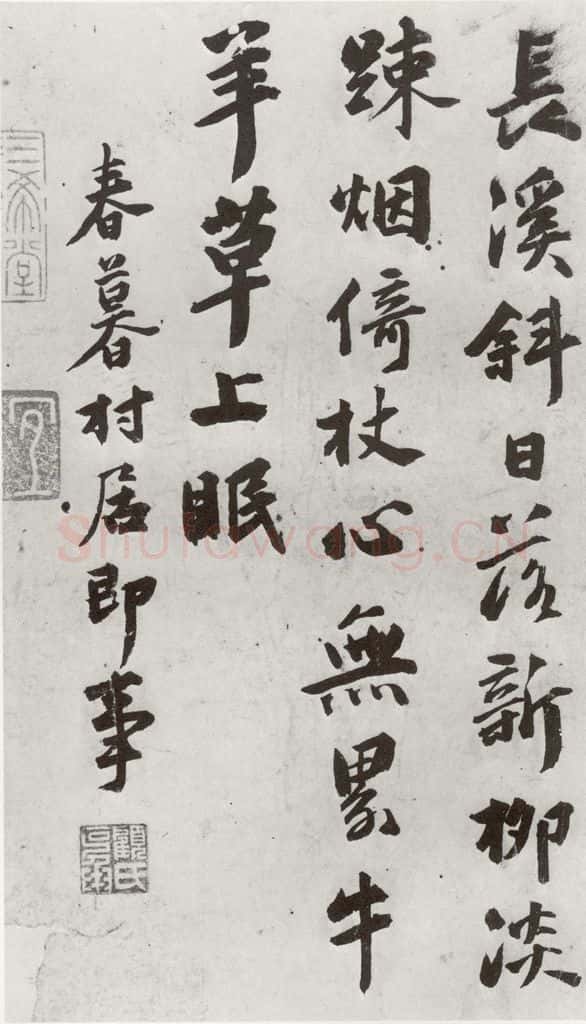 長溪斜日落新柳淡
踈烟倚杖心無累牛
羊草上眠
春暮村居即事
三希堂
Shufawang.CN